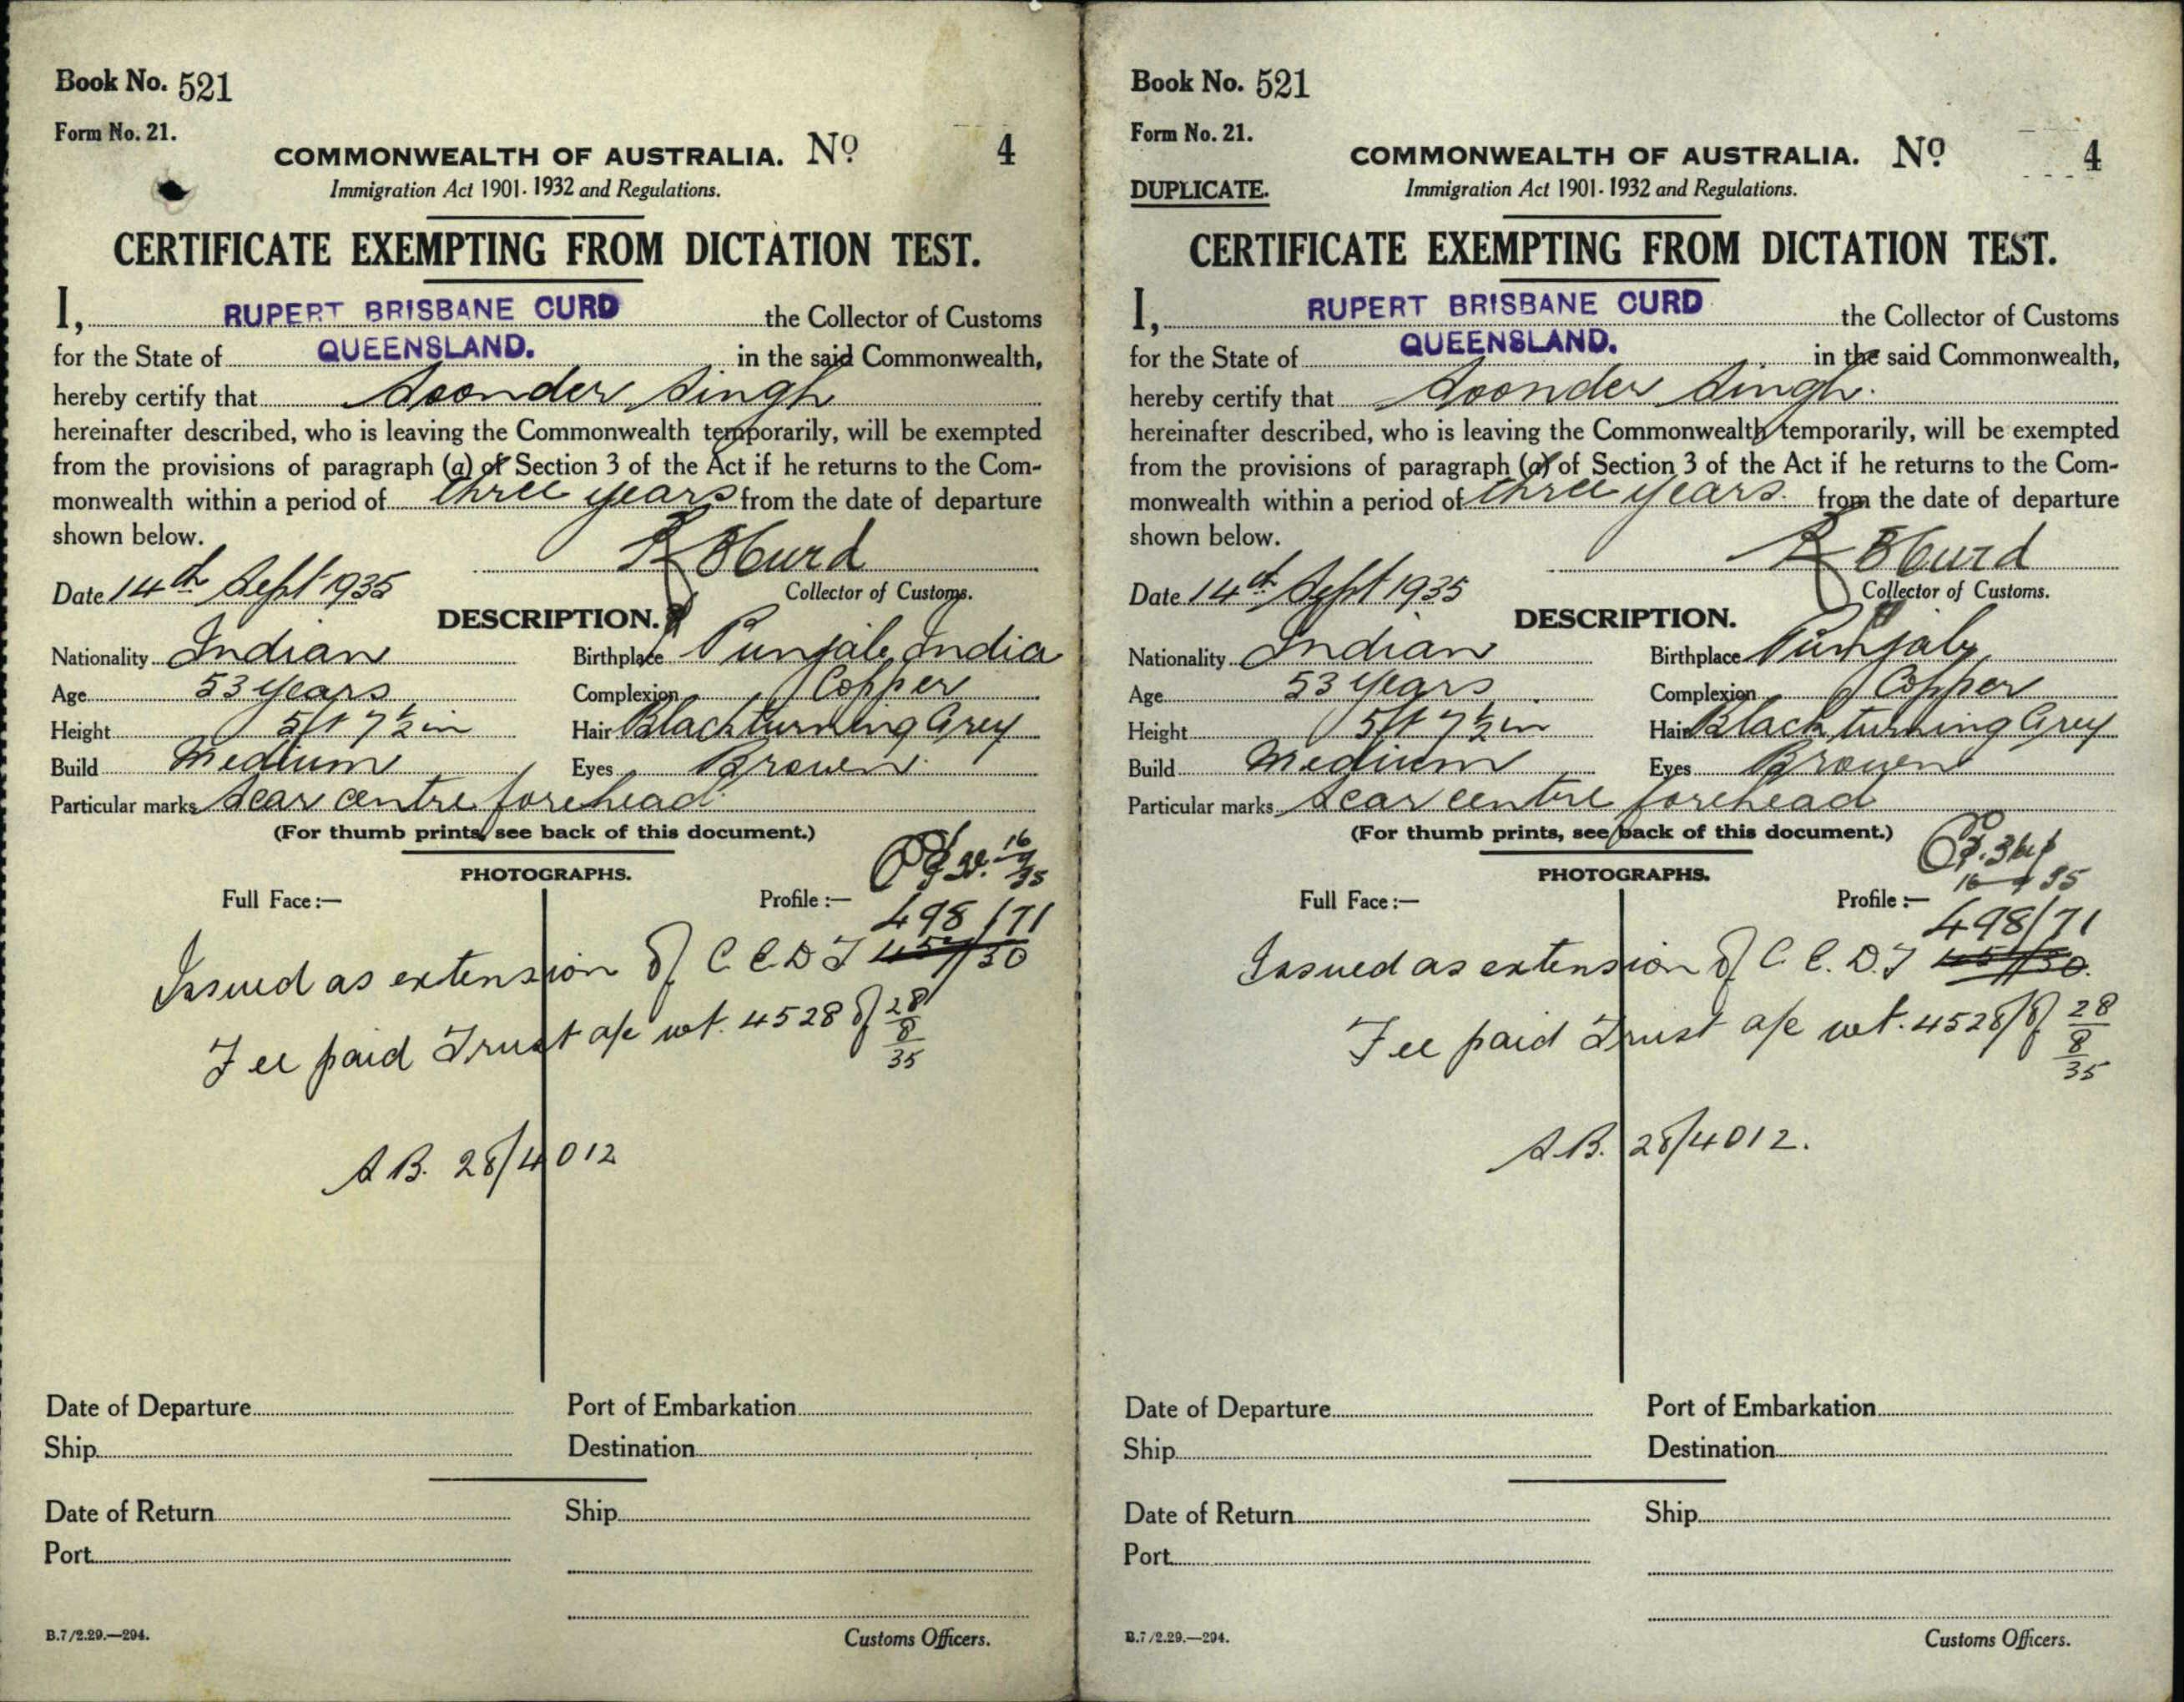 Book No. 521
Form No. 21.
COMMONWEALTH OF AUSTRALIA. No 4
Immigration Act 1901-1932 and Regulations.
CERTIFICATE EXEMPTING FROM DICTATION TEST.
I, RUPERT BRISBANE CURD the Collector of Customs
for the State of QUEENSLAND. in the said Commonwealth,
hereby certify that Soonder Singh
hereinafter described, who is leaving the Commonwealth temporarily, will be exempted
from the provisions of paragraph (a) of Section 3 of the Act if he returns to the Com-
monwealth within a period of three years from the date of departure
shown below.
R B Curd
Date 14th Sept 1935 Collector of Customs.
DESCRIPTION.
Nationality Indian Birthplace Punjab, India
Age 53 years Complexion Copper
Height 5ft 7½ in Hair Black turning Grey
Build Medium Eyes Brown
Particular marks Scar centre forehead
(For thumb prints, see back of this document.)
PHOTOGRAPHS.
16/9/35
Full Face:— Profile:—
498/71
Issued as extension of C E D T
Fee paid Trust a/c wt. 4528 of 28/8/35
A B. 28/4012
Date of Departure Port of Embarkation
Ship Destination
Date of Return Ship
Port
B.7/2.29.—294. Customs Officers.
Book No. 521
Form No. 21.
COMMONWEALTH OF AUSTRALIA. No 4
DUPLICATE. Immigration Act 1901-1932 and Regulations.
CERTIFICATE EXEMPTING FROM DICTATION TEST.
I, RUPERT BRISBANE CURD the Collector of Customs
for the State of QUEENSLAND. in the said Commonwealth,
hereby certify that Soonder Singh.
hereinafter described, who is leaving the Commonwealth temporarily, will be exempted
from the provisions of paragraph (a) of Section 3 of the Act if he returns to the Com-
monwealth within a period of three years. from the date of departure
shown below.
R B Curd
Date 14th Sept 1935 Collector of Customs.
DESCRIPTION.
Nationality Indian Birthplace Punjab,
Age 53 years Complexion Copper
Height 5ft 7½ in Hair Black turning Grey
Build Medium Eyes Brown
Particular marks Scar centre forehead
(For thumb prints, see back of this document.)
PHOTOGRAPHS.
16 9 35
Full Face:— Profile:—
498/71
Issued as extension of C E. D. T
Fee paid Trust a/c wt. 4528 of 28/8/35
A.B. 28/4012.
Date of Departure Port of Embarkation
Ship Destination
Date of Return Ship
Port
B.7/2.29.—294. Customs Officers.